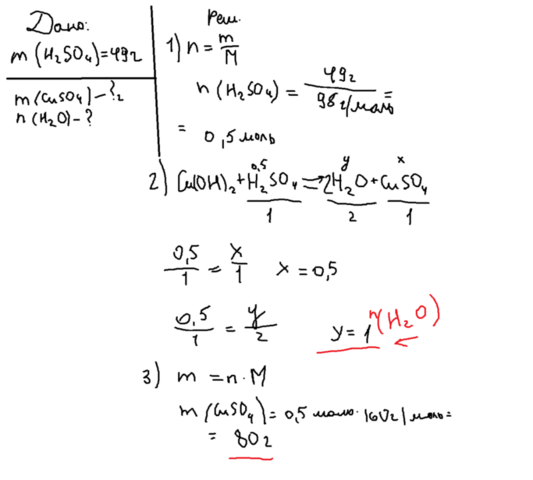 Дано:
m(H₂SO₄)=49г
m(CuSO₄)-?г
n(H₂O)-?
Реш.
1) n=m/M
n(H₂SO₄)=49г/98г/моль=
= 0,5 моль
0,5 y x
2) Cu(OH)₂+H₂SO₄=>2H₂O+CuSO₄
1 2 1
0,5/1=x/1 x=0,5
0,5/1=y/2 y=1 n(H₂O)
3) m=n·M
m(CuSO₄)=0,5 моль·160г/моль=
= 80г